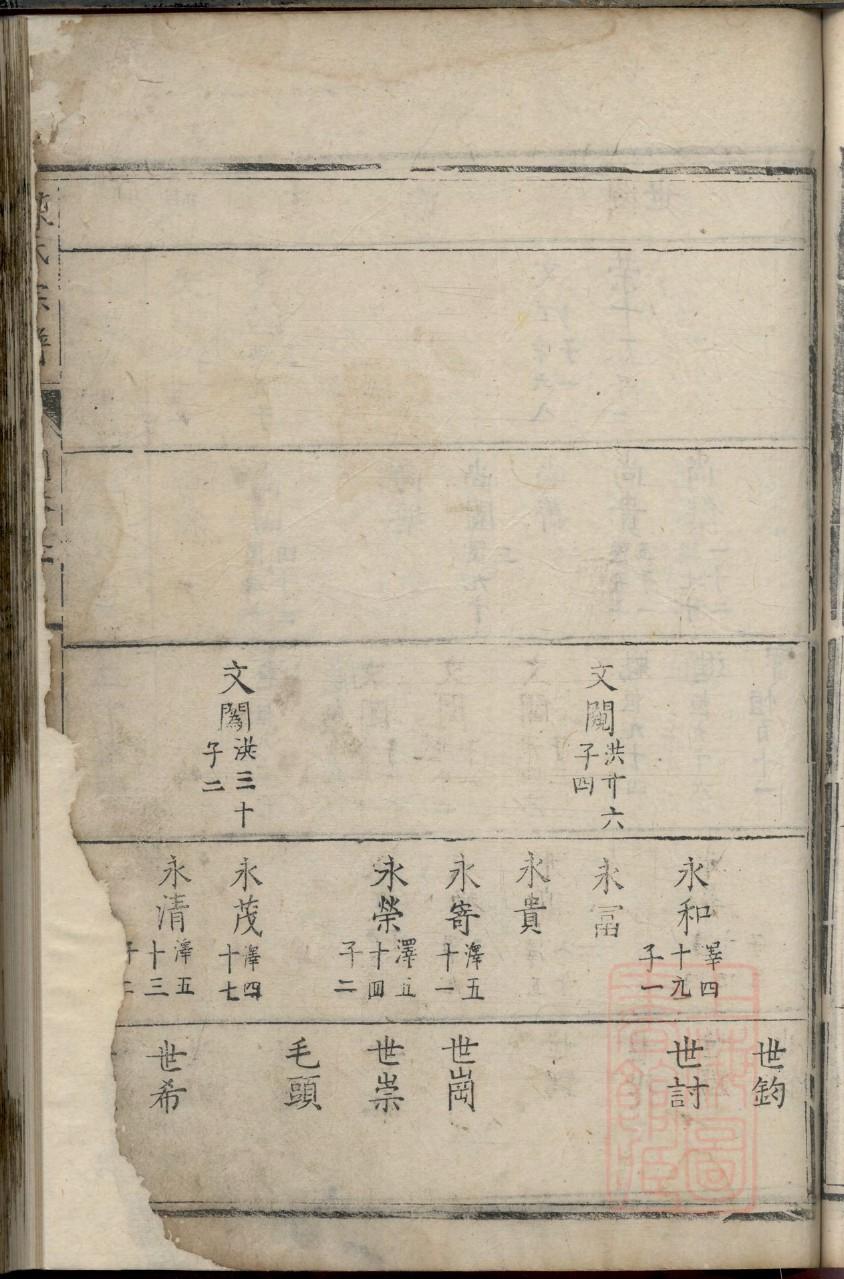 文閱洪廾六
子四
文闖洪三十
子二
永和澤四
十九
子一
永冨
永貴
永寄澤五
十一
永榮澤五
十四
子二
永茂澤四
十七
永清澤五
十三
子二
世鈞
世討
世崗
世崇
毛頭
世希
氏宗譜